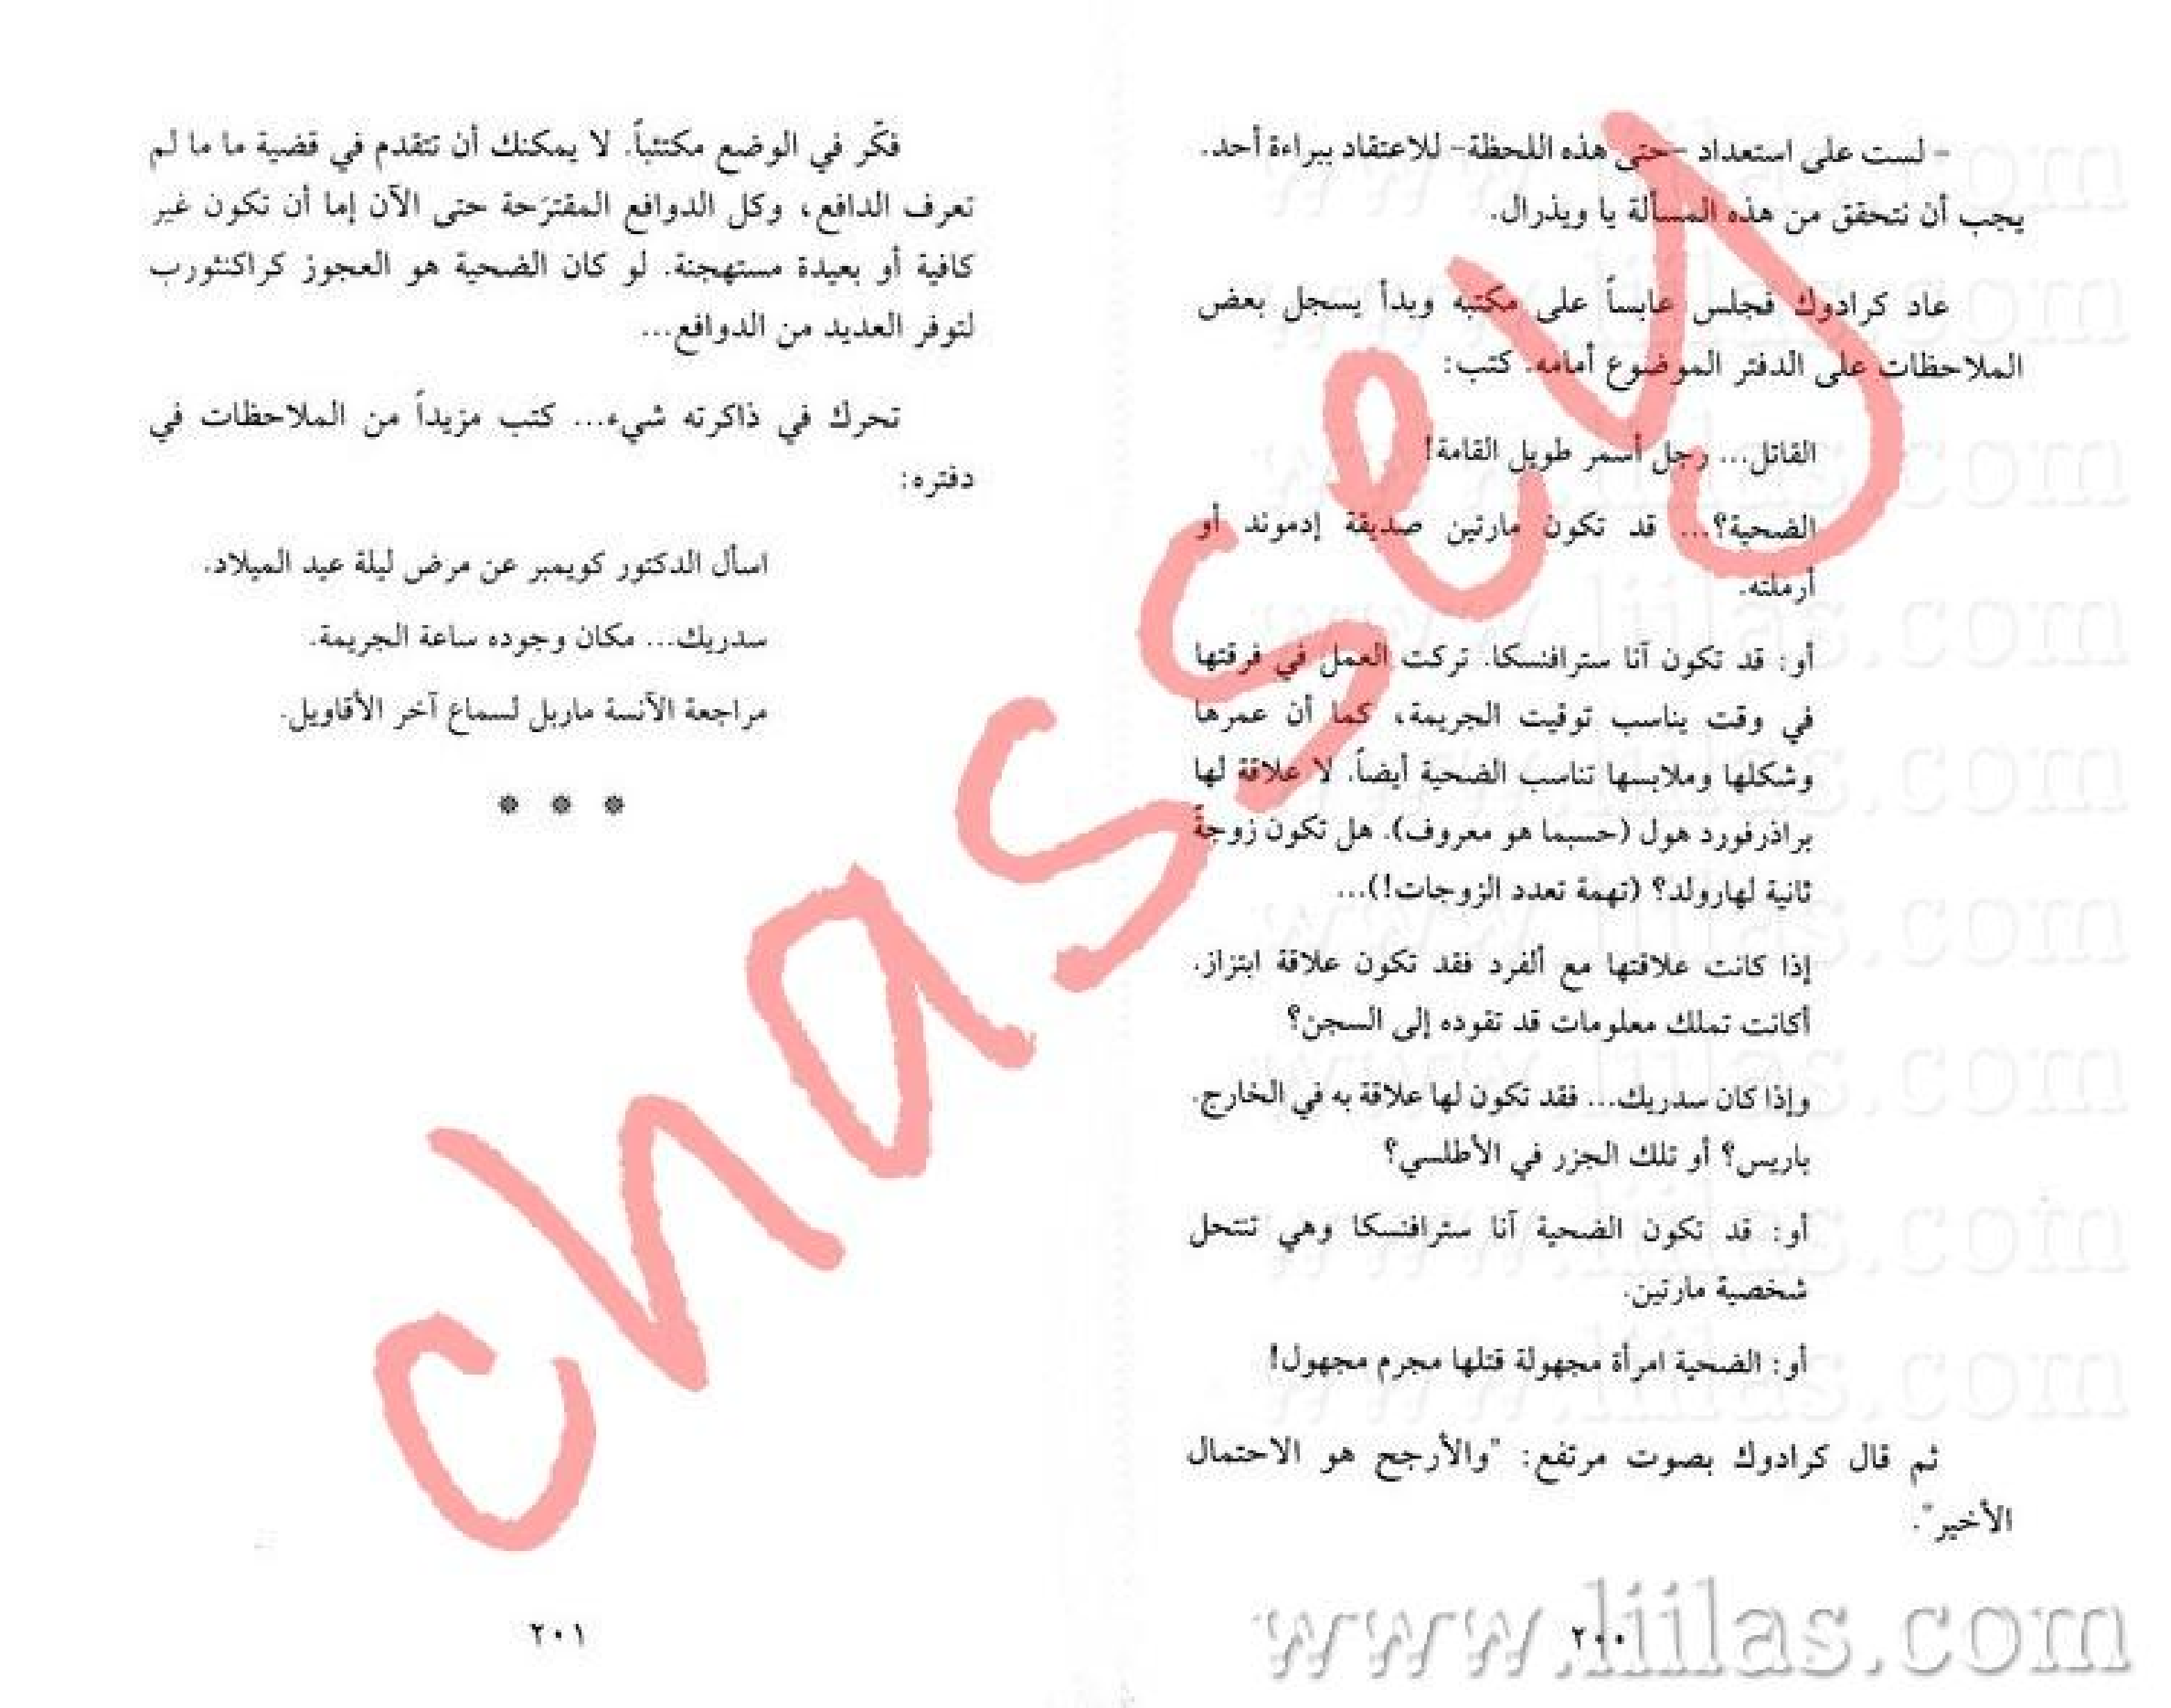 - لست على استعداد -حتى هذه اللحظة- للاعتقاد ببراءة أحد.
يجب أن نتحقق من هذه المسألة يا ويذرال.
عاد كرادوك فجلس عابساً على مكتبه وبدأ يسجل بعض
الملاحظات على الدفتر الموضوع أمامه. كتب:
القاتل... رجل أسمر طويل القامة!
الضحية؟... قد تكون مارتين صديقة إدموند أو
أرملته.
أو: قد تكون آنا سترافنسكا. تركت العمل في فرقتها
في وقت يناسب توقيت الجريمة، كما أن عمرها
وشكلها وملابسها تناسب الضحية أيضاً. لا علاقة لها
براذرفورد هول (حسبما هو معروف). هل تكون زوجةً
ثانية لهارولد؟ (تهمة تعدد الزوجات!)...
إذا كانت علاقتها مع ألفرد فقد تكون علاقة ابتزاز.
أكانت تملك معلومات قد تقوده إلى السجن؟
وإذا كان سدريك... فقد تكون لها علاقة به في الخارج.
باريس؟ أو تلك الجزر في الأطلسي؟
أو: قد تكون الضحية آنا سترافنسكا وهي تنتحل
شخصية مارتين.
أو: الضحية امرأة مجهولة قتلها مجرم مجهول!
ثم قال كرادوك بصوت مرتفع: "والأرجح هو الاحتمال
الأخير".
٢٠٠
فكّر في الوضع مكتئباً. لا يمكنك أن تتقدم في قضية ما ما لم
تعرف الدافع، وكل الدوافع المقترَحة حتى الآن إما أن تكون غير
كافية أو بعيدة مستهجنة. لو كان الضحية هو العجوز كراكنثورب
لتوفر العديد من الدوافع...
تحرك في ذاكرته شيء... كتب مزيداً من الملاحظات في
دفتره:
اسأل الدكتور كويمبر عن مرض ليلة عيد الميلاد.
سدريك... مكان وجوده ساعة الجريمة.
مراجعة الآنسة ماربل لسماع آخر الأقاويل.
* * *
٢٠١
www.liilas.com